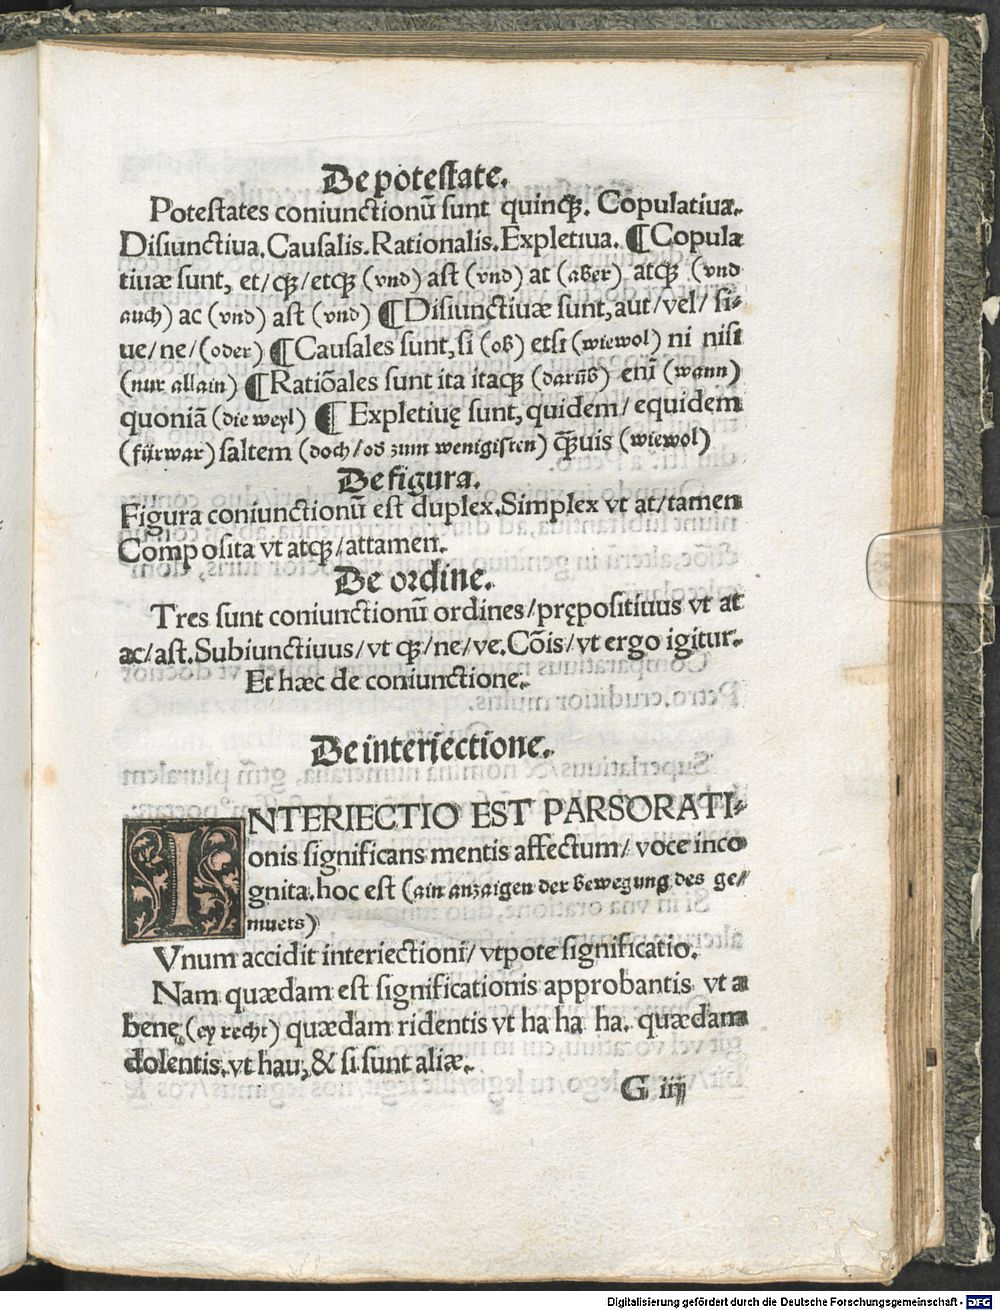 De potestate.
Potestates coniunctionū sunt quinqꝫ. Copulatiua.
Disiunctiua. Causalis. Rationalis. Expletiua. ¶ Copula
tiuæ sunt, et/ qꝫ/ etqꝫ (vnd) ast (vnd) at (aber) atqꝫ (vnd
auch) ac (vnd) ast (vnd) ¶ Disiunctiuæ sunt, aut/ vel/ si⸗
ue/ ne/ (oder) ¶ Causales sunt, si (ob) etsi (wiewol) ni nisi
(nur allain) ¶ Ratiōales sunt ita itaqꝫ (darūb) eni̅ (wann)
quoniā (die weyl) ¶ Expletiuę sunt, quidem/ equidem
(fürwar) saltem (doch/ od zum wenigisten) qꝫuis (wiewol)
De figura.
Figura coniunctionū est duplex. Simplex vt at/ tamen
Composita vt atqꝫ/ attamen.
De ordine.
Tres sunt coniunctionū ordines/ prępositiuus vt at
ac/ ast. Subiunctiuus/ vt qꝫ/ ne/ ve. Cōis/ vt ergo igitur.
Et hæc de coniunctione.
De interiectione.
INTERIECTIO EST PARS ORATI⸗
onis significans mentis affectum/ voce inco
gnita. hoc est (ain anzaigen der bewegung des ge⸗
muets)
Vnum accidit interiectioni/ vtpote significatio.
Nam quædam est significationis approbantis vt a
bene, (ey recht) quædam ridentis vt ha ha ha. quædam
dolentis, vt hau, & si sunt aliæ.
G iij
Digitalisierung gefördert durch die Deutsche Forschungsgemeinschaft - DFG